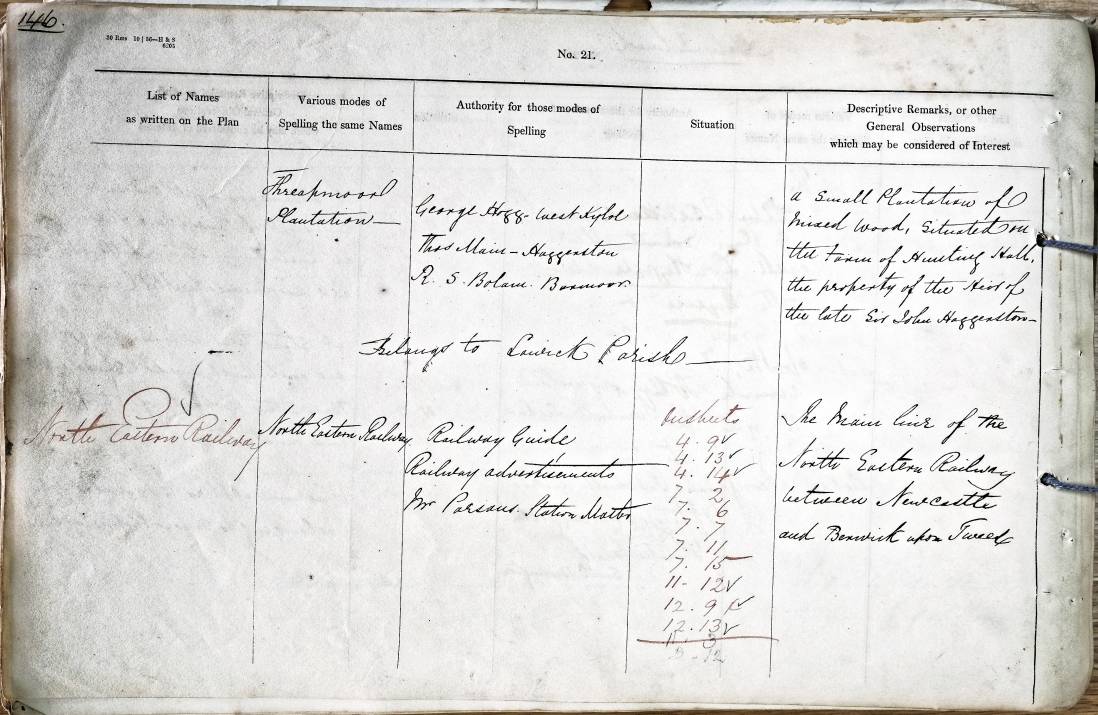 146.
30 Rms 10 | 56—H & S
6205
No. 21.
List of Names
as written on the Plan
Various modes of
Spelling the same Names
Authority for those modes of
Spelling
Situation
Descriptive Remarks, or other
General Observations
which may be considered of Interest
Threapmoor
Plantation
George Hogg - West Kyloe
Thos Main - Haggerston
R. S. Bolam. Barmoor
a Small Plantation of
Mixed Wood, Situated on
the Farm of Hunting Hall,
the property of the Heir of
the late Sir John Haggerston
Belongs to Lowick Parish
North Eastern Railway
North Eastern Railway
Railway Guide
Railway advertisements
Mr Parsons. Station Master
On sheets
4. 9
4. 13
4. 14
7. 2
7. 6
7. 7
7. 11
7. 15
11- 12
12. 9
12. 13
The Main line of the
North Eastern Railway
between Newcastle
and Berwick upon Tweed